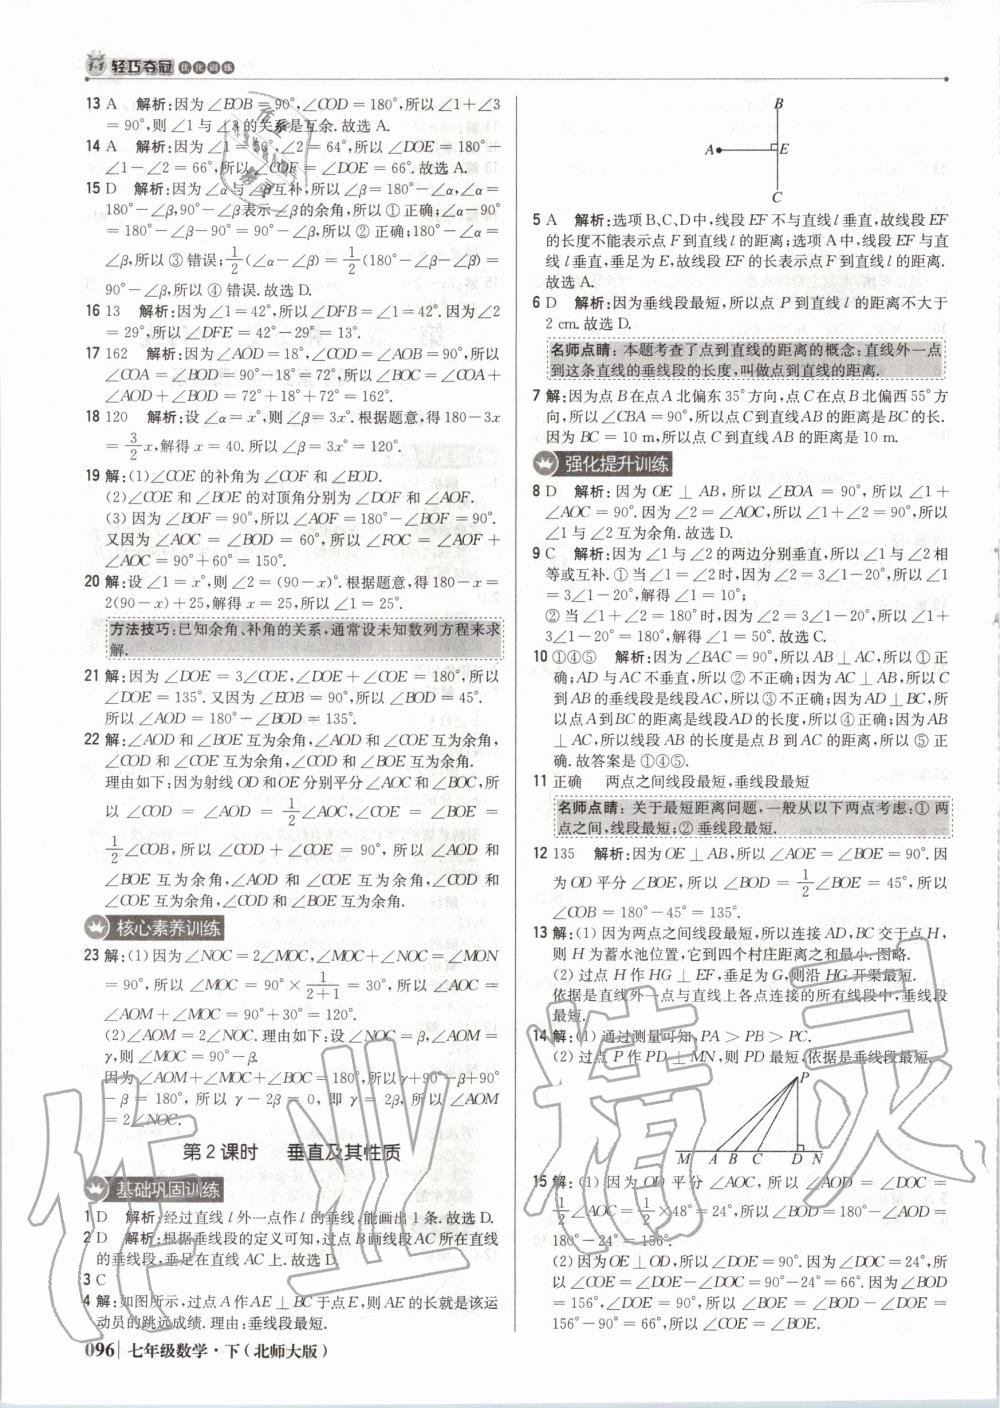 1+1 轻巧夺冠 优化训练
13 A 解析:因为∠EOB=90°,∠COD=180°,所以∠1+∠3
=90°,则∠1与∠3的关系是互余.故选A.
14 A 解析:因为∠1=50°,∠2=64°,所以∠DOE=180°-
∠1-∠2=66°,所以∠COF=∠DOE=66°.故选A.
15 D 解析:因为∠α与∠β互补,所以∠β=180°-∠α,∠α=
180°-∠β,90°-∠β表示∠β的余角,所以①正确;∠α-90°
=180°-∠β-90°=90°-∠β,所以②正确;180°-∠α=
∠β,所以③错误;1/2(∠α-∠β)=1/2(180°-∠β-∠β)=
90°-∠β,所以④错误.故选D.
16 13 解析:因为∠1=42°,所以∠DFB=∠1=42°.因为∠2
=29°,所以∠DFE=42°-29°=13°.
17 162 解析:因为∠AOD=18°,∠COD=∠AOB=90°,所以
∠COA=∠BOD=90°-18°=72°,所以∠BOC=∠COA+
∠AOD+∠BOD=72°+18°+72°=162°.
18 120 解析:设∠α=x°,则∠β=3x°.根据题意,得180-3x
=3/2x,解得x=40.所以∠β=3x°=120°.
19 解:(1)∠COE的补角为∠COF和∠EOD.
(2)∠COE和∠BOE的对顶角分别为∠DOF和∠AOF.
(3)因为∠BOF=90°,所以∠AOF=180°-∠BOF=90°.
又因为∠AOC=∠BOD=60°,所以∠FOC=∠AOF+
∠AOC=90°+60°=150°.
20 解:设∠1=x°,则∠2=(90-x)°.根据题意,得180-x=
2(90-x)+25,解得x=25,所以∠1=25°.
方法技巧:已知余角、补角的关系,通常设未知数列方程来求
解.
21 解:因为∠DOE=3∠COE,∠DOE+∠COE=180°,所以
∠DOE=135°.又因为∠EOB=90°,所以∠BOD=45°.
所以∠AOD=180°-∠BOD=135°.
22 解:∠AOD和∠BOE互为余角,∠AOD和∠COE互为余角,
∠COD和∠COE互为余角,∠COD和∠BOE互为余角.
理由如下:因为射线OD和OE分别平分∠AOC和∠BOC,所
以∠COD=∠AOD=1/2∠AOC,∠COE=∠BOE=
1/2∠COB,所以∠COD+∠COE=90°,所以∠AOD和
∠BOE互为余角,∠AOD和∠COE互为余角,∠COD和
∠COE互为余角,∠COD和∠BOE互为余角.
核心素养训练
23 解:(1)因为∠NOC=2∠MOC,∠MOC+∠NOC=∠MON
=90°,所以∠MOC=90°×1/(2+1)=30°,所以∠AOC=
∠AOM+∠MOC=90°+30°=120°.
(2)∠AOM=2∠NOC.理由如下:设∠NOC=β,∠AOM=
γ,则∠MOC=90°-β.
因为∠AOM+∠MOC+∠BOC=180°,所以γ+90°-β+90°
-β=180°,所以γ-2β=0,即γ=2β,所以∠AOM=
2∠NOC.
第2课时 垂直及其性质
基础巩固训练
1 D 解析:经过直线l外一点作l的垂线,能画出1条.故选D.
2 D 解析:根据垂线段的定义可知,过点B画线段AC所在直线
的垂线段,垂足在直线AC上.故选D.
3 C
4 解:如图所示,过点A作AE⊥BC于点E,则AE的长就是该运
动员的跳远成绩.理由:垂线段最短.
096 七年级数学·下(北师大版)
B
A E
C
5 A 解析:选项B,C,D中,线段EF不与直线l垂直,故线段EF
的长度不能表示点F到直线l的距离;选项A中,线段EF与直
线l垂直,垂足为E,故线段EF的长表示点F到直线l的距离.
故选A.
6 D 解析:因为垂线段最短,所以点P到直线l的距离不大于
2 cm.故选D.
名师点睛:本题考查了点到直线的距离的概念:直线外一点
到这条直线的垂线段的长度,叫做点到直线的距离.
7 解:因为点B在点A北偏东35°方向,点C在点B北偏西55°方
向,所以∠CBA=90°,所以点C到直线AB的距离是BC的长.
因为BC=10 m,所以点C到直线AB的距离是10 m.
强化提升训练
8 D 解析:因为OE⊥AB,所以∠EOA=90°,所以∠1+
∠AOC=90°.因为∠2=∠AOC,所以∠1+∠2=90°,所以
∠1与∠2互为余角.故选D.
9 C 解析:因为∠1与∠2的两边分别垂直,所以∠1与∠2相
等或互补.①当∠1=∠2时,因为∠2=3∠1-20°,所以∠1
=3∠1-20°,解得∠1=10°;
②当∠1+∠2=180°时,因为∠2=3∠1-20°,所以∠1+
3∠1-20°=180°,解得∠1=50°.故选C.
10 ①④⑤ 解析:因为∠BAC=90°,所以AB⊥AC,所以①正
确;AD与AC不垂直,所以②不正确;因为AC⊥AB,所以C
到AB的垂线段是线段AC,所以③不正确;因为AD⊥BC,所
以点A到BC的距离是线段AD的长度,所以④正确;因为AB
⊥AC,所以线段AB的长度是点B到AC的距离,所以⑤正
确.故答案是①④⑤.
11 正确 两点之间线段最短,垂线段最短
名师点睛:关于最短距离问题,一般从以下两点考虑:①两
点之间,线段最短;②垂线段最短.
12 135 解析:因为OE⊥AB,所以∠AOE=∠BOE=90°.因
为OD平分∠BOE,所以∠BOD=1/2∠BOE=45°,所以
∠COB=180°-45°=135°.
13 解:(1)因为两点之间线段最短,所以连接AD,BC交于点H,
则H为蓄水池位置,它到四个村庄距离之和最小.图略.
(2)过点H作HG⊥EF,垂足为G,则沿HG开渠最短.
依据是直线外一点与直线上各点连接的所有线段中,垂线段
最短.
14 解:(1)通过测量可知,PA>PB>PC.
(2)过点P作PD⊥MN,则PD最短.依据是垂线段最短.
P
M A B C D N
15 解:(1)因为OD平分∠AOC,所以∠AOD=∠DOC=
1/2∠AOC=1/2×48°=24°,所以∠BOD=180°-∠AOD=
180°-24°=156°.
(2)因为OE⊥OD,所以∠DOE=90°.因为∠DOC=24°,所
以∠COE=∠DOE-∠DOC=90°-24°=66°.因为∠BOD
=156°,∠DOE=90°,所以∠BOE=∠BOD-∠DOE=
156°-90°=66°,所以∠COE=∠BOE.
作业精灵